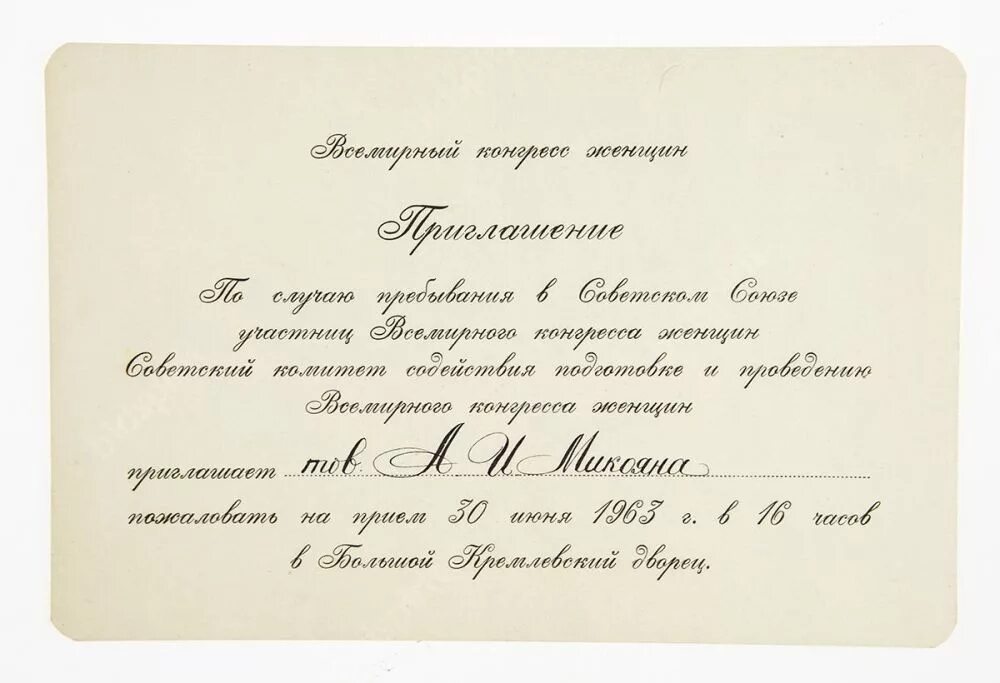 Всемирный конгресс женщин
Приглашение
По случаю пребывания в Советском Союзе
участниц Всемирного конгресса женщин
Советский комитет содействия подготовке и проведению
Всемирного конгресса женщин
приглашает тов. А И Микояна
пожаловать на прием 30 июня 1963 г. в 16 часов
в Большой Кремлевский дворец.